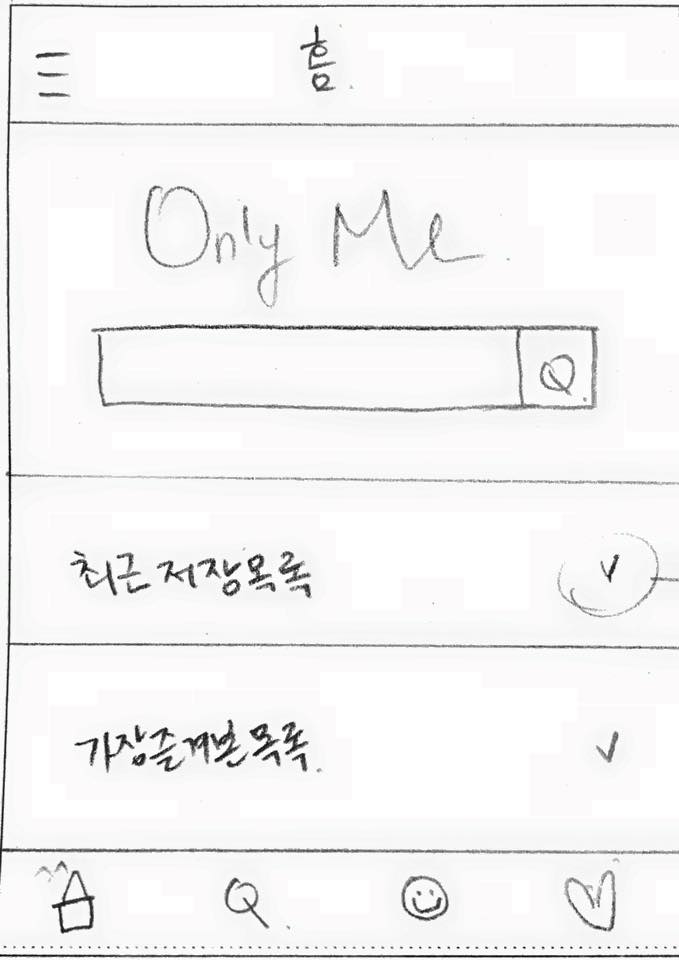 홈.
Only Me.
최근 저장목록
가장즐겨본목록.